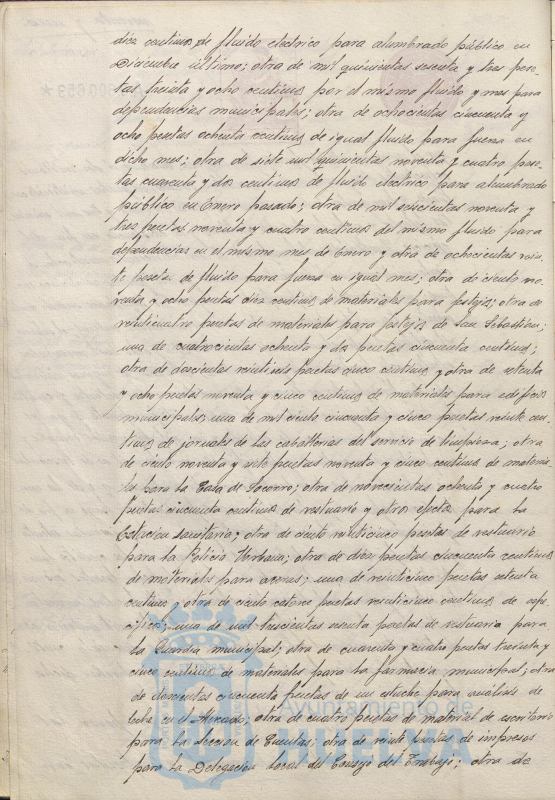 diez centimos de fluido electrico para alumbrado público en
Diciembre último; otra de mil quinientas sesenta y tres pese-
tas treinta y ocho centimos por el mismo fluido y mes para
dependencias municipales; otra de ochocientas cincuenta y
ocho pesetas ochenta centimos de igual fluido para fuerza en
dicho mes; otra de siete mil quinientas noventa y cuatro pese-
tas cuarenta y dos centimos de fluido electrico para alumbrado
público en Enero pasado; otra de mil seiscientas noventa y
tres pesetas noventa y cuatro centimos del mismo fluido para
dependencias en el mismo mes de Enero y otra de ochocientas vein-
te pesetas de fluido para fuerza en igual mes; otra de ciento no-
venta y ocho pesetas diez centimos de materiales para festejos; otra de
veinticuatro pesetas de materiales para festejos de San Sebastian;
una de cuatrocientas ochenta y dos pesetas cincuenta centimos;
otra de doscientas veintiseis pesetas cinco centimos y otra de setenta
y ocho pesetas noventa y cinco centimos de materiales para edificios
municipales; una de mil ciento cincuenta y cinco pesetas veinte cen-
timos de jornales de las caballerias del servicio de limpieza; otra
de ciento noventa y siete pesetas noventa y cinco centimos de materia-
les para la Casa de Socorro; otra de novecientas ochenta y cuatro
pesetas cincuenta centimos de vestuario y otros efectos para la
Estacion Sanitaria; otra de ciento veinticinco pesetas de vestuario
para la Policia Urbana; otra de diez pesetas cincuenta centimos
de materiales para aceras; una de veinticinco pesetas setenta
centimos; otra de ciento catorce pesetas veinticinco centimos de espe-
cificos; una de mil trescientas sesenta pesetas de vestuario para
la Guardia municipal; otra de cuarenta y cuatro pesetas treinta y
cinco centimos de materiales para la farmacia municipal; otra
de doscientas cincuenta pesetas de un estuche para analisis de
leche en el Mercado; otra de cuatro pesetas de material de escritorio
para la Seccion de Cuentas; otra de veinte pesetas de impresos
para la Delegacion local del Consejo del Trabajo; otra de
Ayuntamiento de
HUELVA